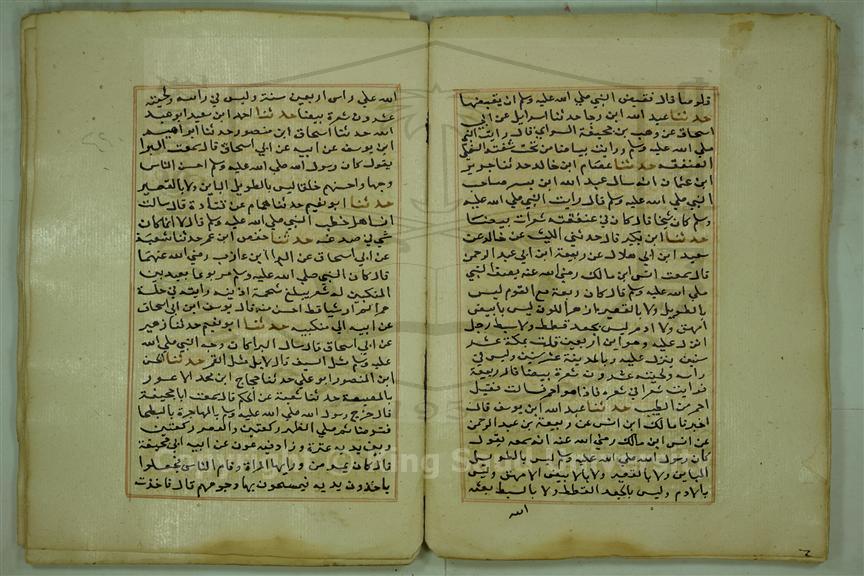 قلوصا قال فقبض النبي صلي الله عليه وسلم ان يقبضها
حدثنا عبد الله ابن رجا حدثنا اسرائل عن ابي
اسحاق عن وهب بن جحيفة السواي قال رايت النبي
صلي الله عليه وسلم ورايت بياضا من تحت شفته السفلي
العنفقه حدثنا عصام ابن خالد حدثنا جرير
ابن عثمان انه سال عبد الله ابن بسر صاحب
النبي صلي الله عليه وسلم قال رايت النبي صلي الله عليه
وسلم كان شيخا قال كان في عنفقته شعرات بيض
حدثنا ابن بكير قال حدثني الليث عن خالد عن
سعيد ابن ابي هلال عن ربيعة ابن ابي عبد الرحمن
قال سمعت انس ابن مالك رضي الله عنه يصف النبي
صلي الله عليه وسلم قال كان ربعة مع القوم ليس
بالطويل ولا بالقصير ازهر اللون ليس بابيض
امهق ولا ادم ليس بجعد قطط ولا سبط رجل
انزل عليه وهو ابن اربعين فلبث بمكة عشر
سنين ينزل عليه وبالمدينة عشر سنين وليس في
راسه ولحيته عشرون شعرة بيضا قال ربيعة
فرايت شعرا من شعره فاذا هو احمر فسالت فقيل
احمر من الطيب حدثنا عبد الله ابن يوسف قال
اخبرنا مالك ابن انس عن ربيعة بن عبد الرحمن
عن انس ابن مالك رضي الله عنه انه سمعه يقول
كان رسول الله صلي الله عليه وسلم ليس بالطويل
الباين ولا بالقصير ولا بالابيض الامهق وليس
بالادم وليس بالجعد القطط ولا بالسبط بعثه
الله
الله علي راس اربعين سنة وليس في راسه ولحيته
عشرون شعرة بيضا حدثنا احمد ابن سعيد ابو عبد
الله حدثنا اسحاق ابن منصور حدثنا ابراهيم
ابن يوسف عن ابيه عن ابي اسحاق قال سمعت البرا
يقول كان رسول الله صلي الله عليه وسلم احسن الناس
وجها واحسنهم خلقا ليس بالطويل الباين ولا بالقصير
حدثنا ابو نعيم حدثنا همام عن قتادة قال سالت
انسا هل خضب النبي صلي الله عليه وسلم قال لا انما كان
شي في صدغيه حدثنا حفص ابن عمر حدثنا شعبة
عن ابي اسحاق عن البرا ابن عازب رضي الله عنهما
قال كان النبي صلي الله عليه وسلم مربوعا بعيد بين
المنكبين له شعر يبلغ شحمة اذنيه رايته في حلة
حمرا لم ار شيا قط احسن منه قال يوسف ابن ابي اسحاق
عن ابيه الي منكبيه حدثنا ابو نعيم حدثنا زهير
عن ابي اسحاق قال سال البرا كان وجه النبي صلي الله
عليه وسلم مثل السيف قال لا بل مثل القمر حدثنا الحسن
ابن المنصور ابو علي حدثنا حجاج ابن محمد الاعور
بالمصيصة حدثنا شعبة عن الحكم قال سمعت ابا جحيفة
قال خرج رسول الله صلي الله عليه وسلم بالهاجرة بالبطحا
فتوضا ثم صلي الظهر ركعتين والعصر ركعتين
وبين يديه عنزة وزاد فيه عون عن ابيه ابي جحيفة
قال كان يمر من ورايها المراة وقام الناس فجعلوا
ياخذون يديه فيمسحون بها وجوههم قال فاخذت